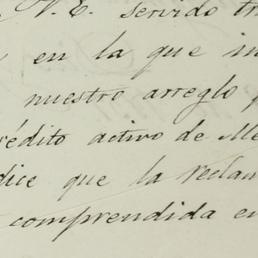 V. E. servido
en la que
nuestro arreglo
crédito activo de Me
dice que la recla
comprendida en